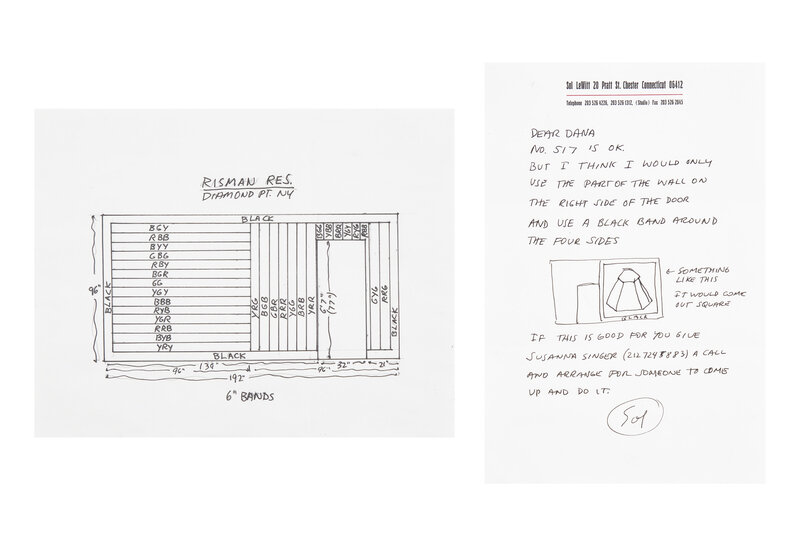 RISMAN RES.
DIAMOND PT. NY
BLACK
BGY
RBB
BYY
GBG
RBY
BGR
GG
YGY
BBB
RYB
YGR
RRB
BYB
YRY
BLACK
YRG
BGB
GBR
RRR
YGG
BRB
YRR
BGG
YBB
BRG
YGY
RYG
RBB
6'7"
(77")
GYG
RRG
BLACK
BLACK
96"
96"
139"
96"
32"
21"
192"
6" BANDS
Sol LeWitt 20 Pratt St. Chester Connecticut 06412
Telephone 203 526 4226, 203 526 1312, (Studio) Fax 203 526 2045
DEAR DANA
NO. 517 IS OK.
BUT I THINK I WOULD ONLY
USE THE PART OF THE WALL ON
THE RIGHT SIDE OF THE DOOR
AND USE A BLACK BAND AROUND
THE FOUR SIDES
SOMETHING
LIKE THIS
IT WOULD COME
OUT SQUARE
BLACK
IF THIS IS GOOD FOR YOU GIVE
SUSANNA SINGER (212 724 8883) A CALL
AND ARRANGE FOR SOMEONE TO COME
UP AND DO IT.
Sol